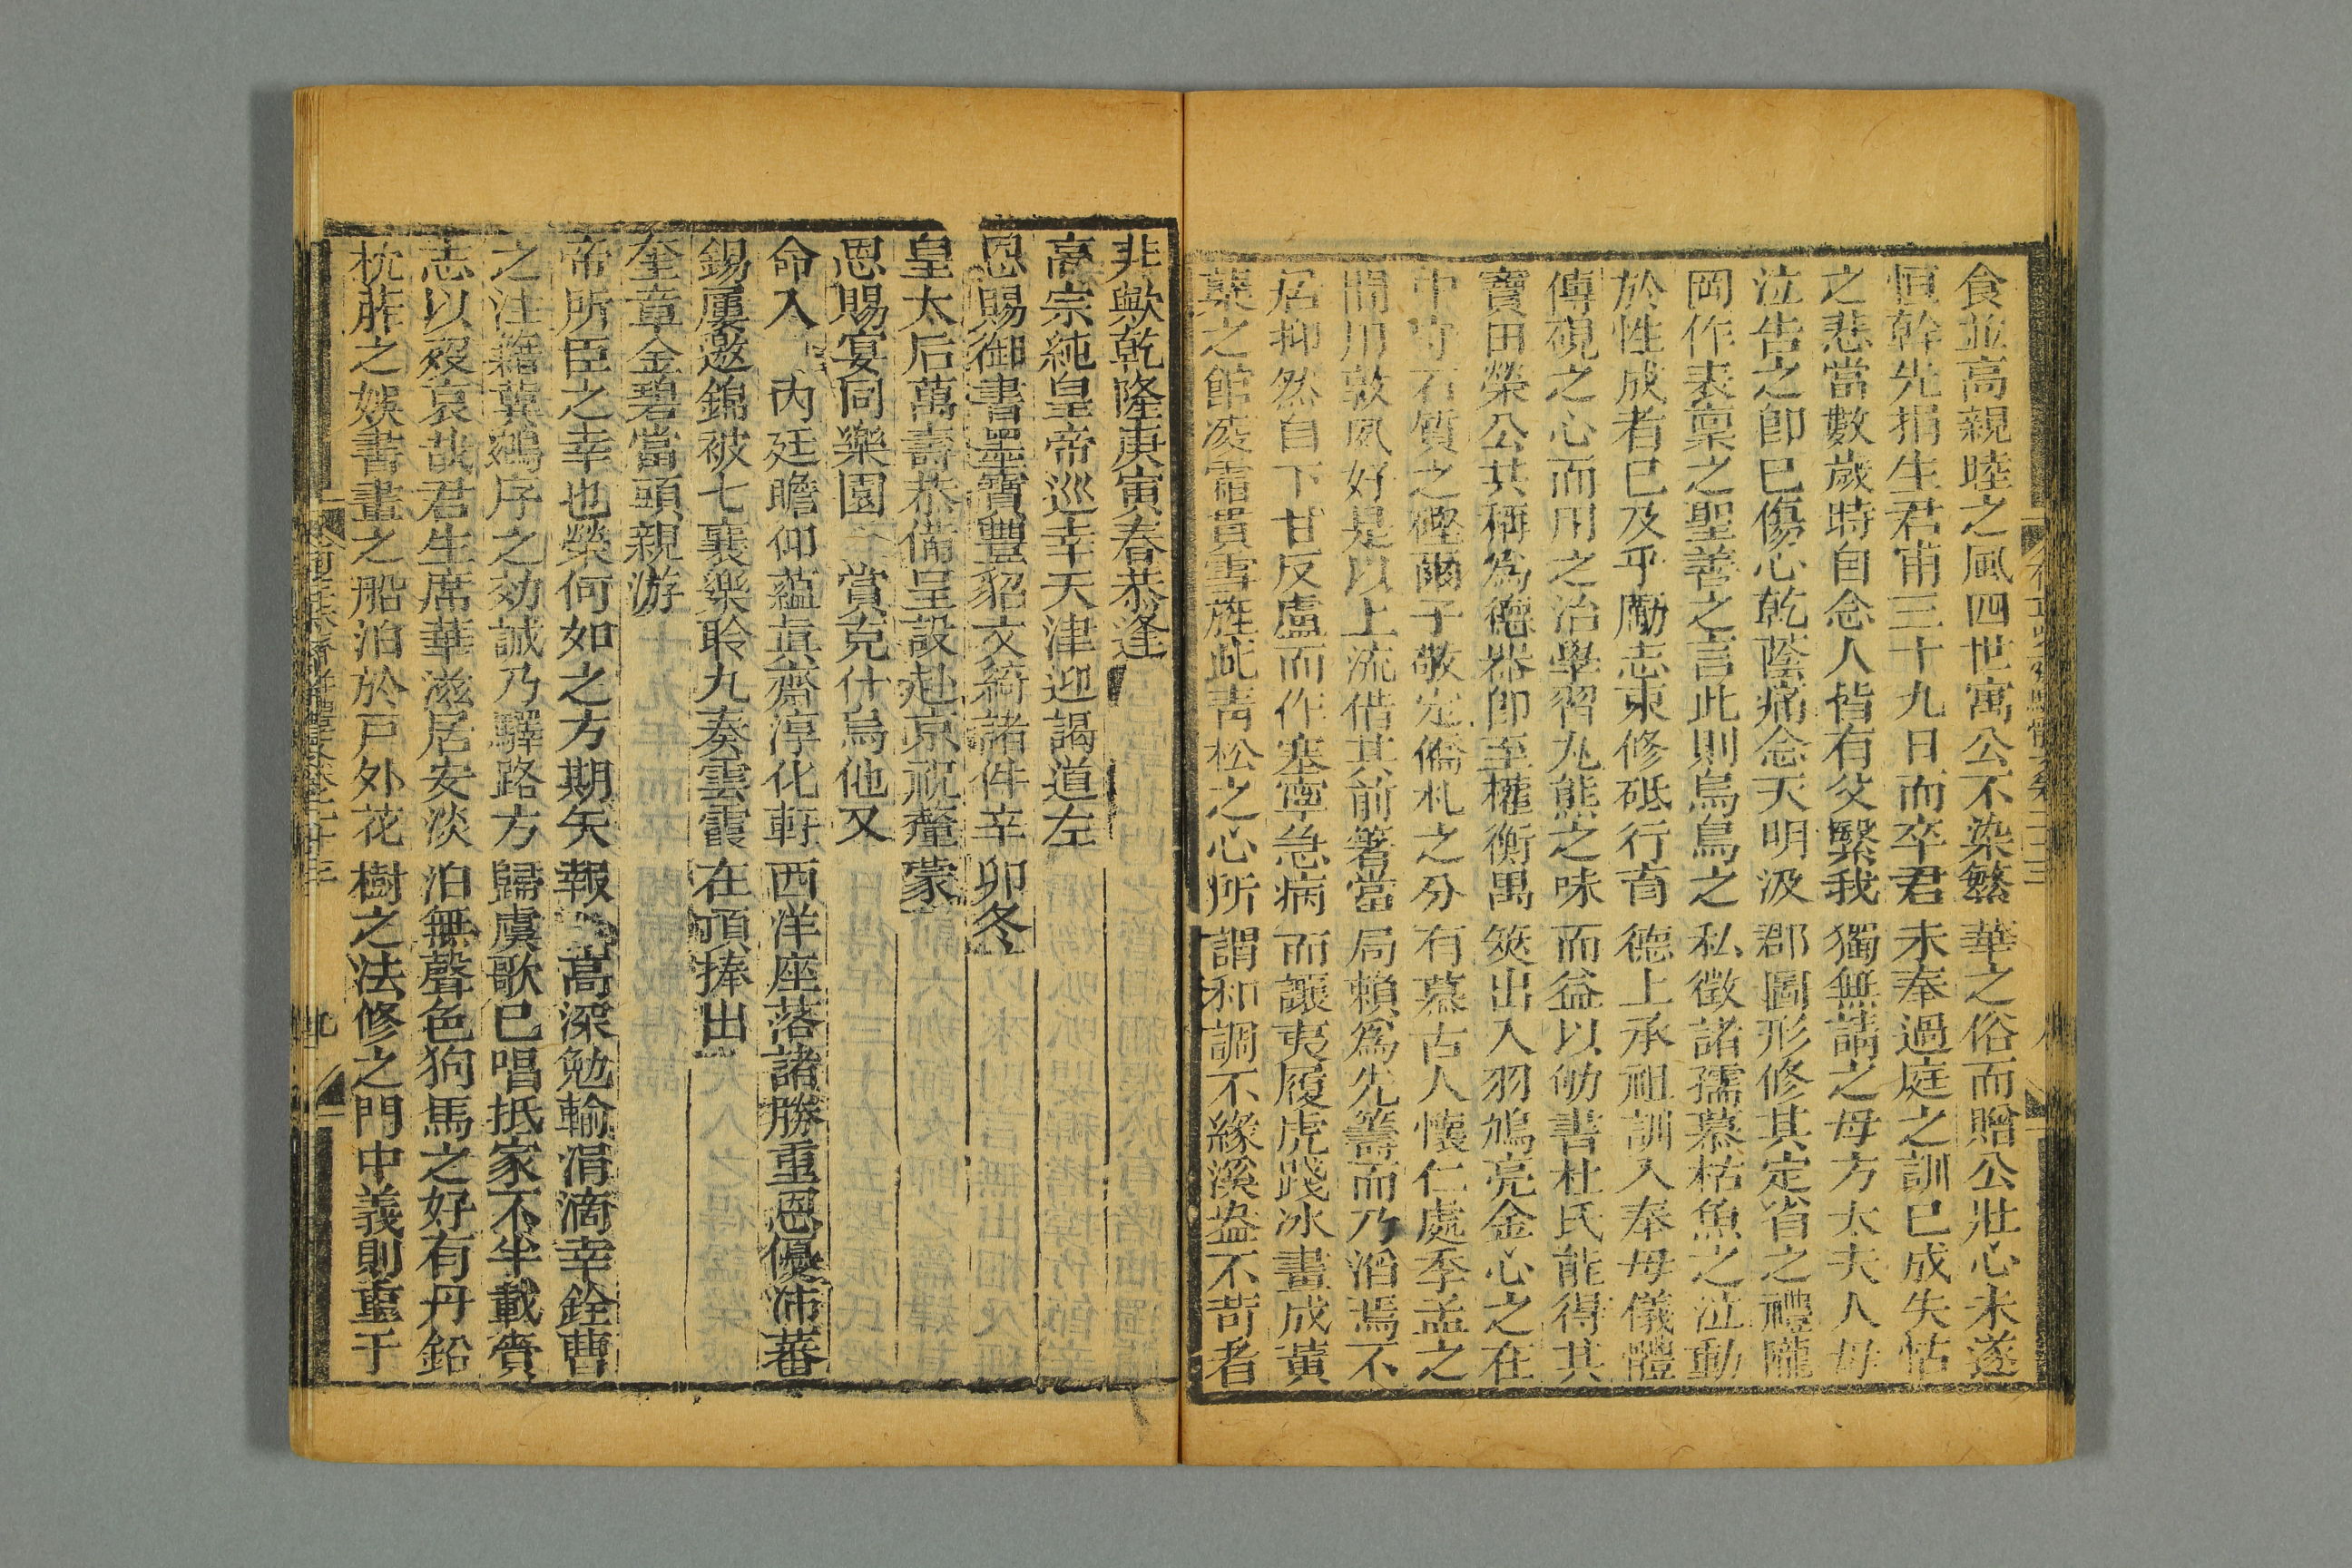 食並高親睦之風四世寓公不染繁華之俗而贈公壯心未遂
恒幹先捐生君甫三十九日而卒君未奉過庭之訓已成失怙
之悲當數歲時自念人皆有父繄我獨無請之母方太夫人母
泣告之卽已傷心乾蔭痛念天明汲郡圖形修其定省之禮隴
岡作表稟之聖善之言此則烏鳥之私徵諸孺慕枯魚之泣動
於性成者已及乎勵志東修砥行育德上承祖訓入奉母儀體
傳硯之心而用之治學習丸熊之味而益以劬書杜氏能得其
寶田榮公共稱爲德器卽至權衡禺筴出入羽鳩亮金心之在
中守石質之硜爾子敬定僑札之分有慕古人懷仁處季孟之
間用敦夙好是以上流借其前箸當局賴爲先籌而乃滔焉不
居抑然自下甘反盧而作塞寧急病而讓夷履虎踐冰畫成黃
蘗之館凌霜貫雪旌此靑松之心所謂和調不緣溪盎不苛者
非歟乾隆庚寅春恭逢
高宗純皇帝巡幸天津迎謁道左
恩賜御書墨寶豐貂文綺諸件辛卯冬
皇太后萬壽恭備呈設赴京祝釐蒙
恩賜宴同樂園 賞克什烏他又
命入 內廷瞻仰蘊眞齋淳化軒西洋座落諸勝重恩優沛蕃
錫屢邀錦被七襄樂聆九奏雲霞在頂捧出
奎章金碧當頭親游
帝所臣之幸也榮何如之方期矢報 高深勉輸涓滴幸銓曹
之注籍冀鵷序之効誠乃驛路方歸虞歌已唱抵家不半載賫
志以歿哀哉君生席華滋居安淡泊無聲色狗馬之好有丹鉛
枕葄之娛書畫之船泊於戸外花樹之法修之門中義則重于